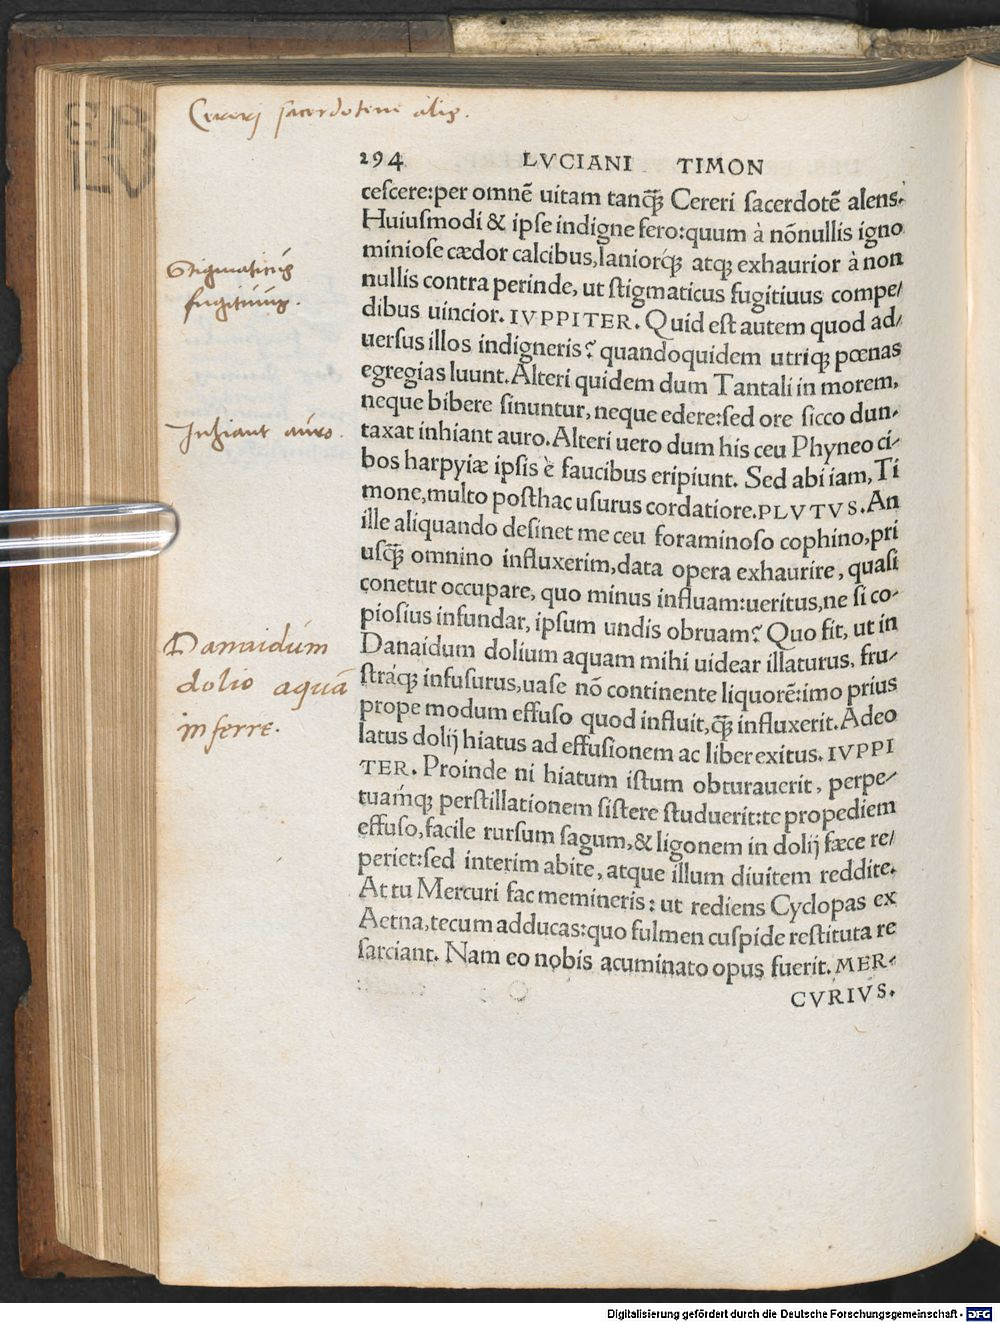 Cereri sacerdotem alis.
294 LVCIANI TIMON
cescere:per omnē uitam tanꝗ̃ Cereri ſacerdotē alens.
Huiuſmodi & ipſe indigne fero:quum à nōnullis igno
miniose cædor calcibus,laniorꝗ́; atꝗ; exhaurior à non
nullis contra perinde, ut ſtigmaticus fugitiuus compe/
dibus uincior. IVPPITER. Quid eſt autem quod ad/
uerſus illos indigneris? quandoquidem utriꝗ; pœnas
egregias luunt. Alteri quidem dum Tantali in morem,
neque bibere ſinuntur, neque edere:ſed ore ſicco dun-
taxat inhiant auro. Alteri uero dum his ceu Phyneo ci-
bos harpyiæ ipſis è faucibus eripiunt. Sed abi iam, Ti
mone,multo poſthac uſurus cordatiore. PLVTVS. An
ille aliquando deſinet me ceu foraminoſo cophino,pri
uſꝗ̃ omnino influxerim,data opera exhaurire, quaſi
conetur occupare, quo minus influam:ueritus,ne ſi co-
pioſius infundar, ipſum undis obruam? Quo fit, ut in
Danaidum dolium aquam mihi uidear illaturus, fru-
ſtráꝗ; infuſurus,uaſe nō continente liquorē:imo prius
prope modum effuſo quod influit,ꝗ̃ influxerit. Adeo
latus dolij hiatus ad effuſionem ac liber exitus. IVPPI
TER. Proinde ni hiatum iſtum obturauerit, perpe-
tuamꝗ́; perſtillationem ſiſtere ſtuduerit:te propediem
effuſo,facile rurſum ſagum,& ligonem in dolij fæce re/
periet:ſed interim abite, atque illum diuitem reddite.
At tu Mercuri fac memineris: ut rediens Cyclopas ex
Aetna,tecum adducas:quo fulmen cuſpide reſtituta re
ſarciant. Nam eo nobis acuminato opus fuerit. MER-
CVRIVS.
Stigmaticus
fugitiuus.
Inhiant auro.
Danaidum
dolio aquā
inferre.
Digitalisierung gefördert durch die Deutsche Forschungsgemeinschaft - DFG